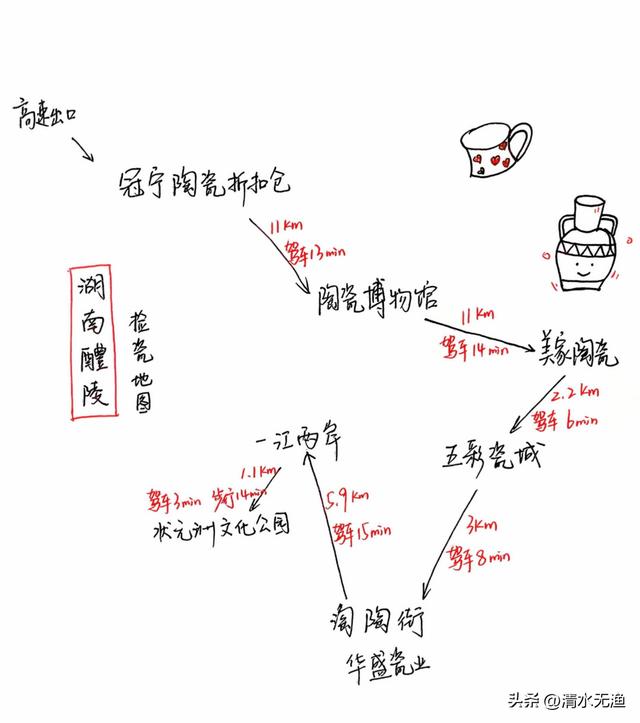 高速出口
冠宁陶瓷折扣仓
11km
驾车13min
陶瓷博物馆
11km
驾车14min
美家陶瓷
2.2km
驾车6min
五彩瓷城
3km
驾车8min
淘陶街
华盛瓷业
5.9km
驾车15min
一江两岸
1.1km
驾车3min 步行14min
状元洲文化公园
湖南醴陵
捡瓷地图
头条@清水无渔